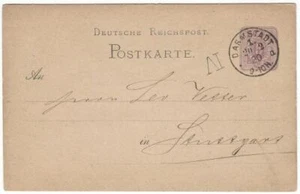 DEUTSCHE REICHSPOST.
POSTKARTE.
DARMSTADT
An
Herrn Leo Vetter
in Stuttgart